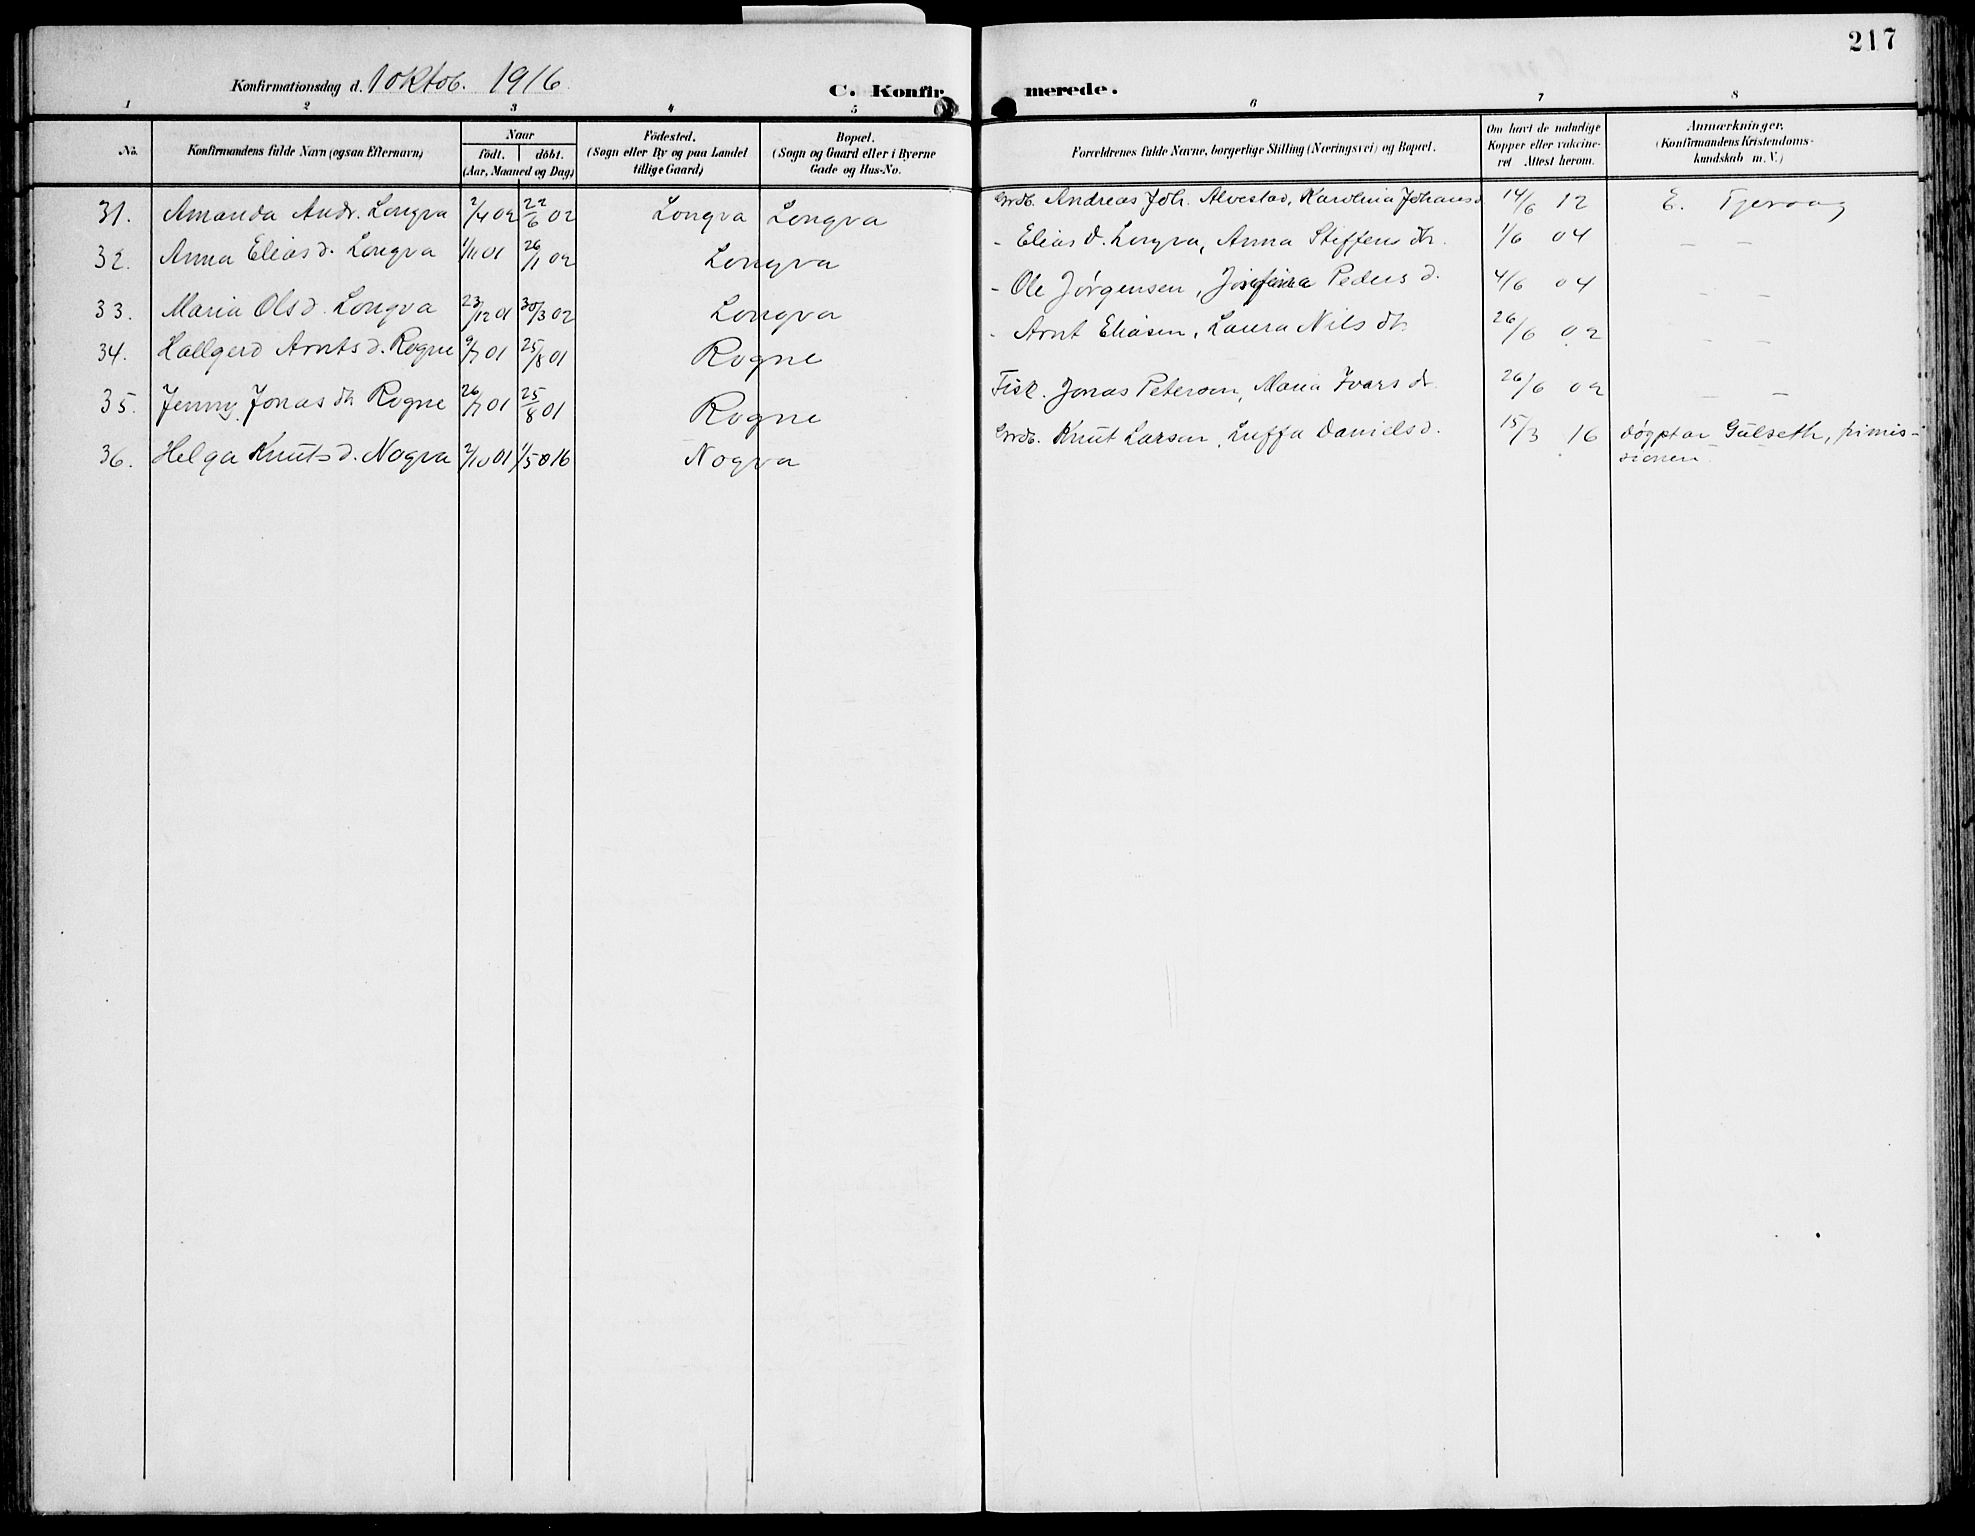 217
Konfirmationsdag d. 1 oktob. 1916. C. Konfir- merede.
1 2 3 4 5 6 7 8
No. Konfirmandens fulde Navn (ogsaa Efternavn) Naar født. døbt. (Aar, Maaned og Dag) Fødested. (Sogn eller By og paa Landet tillige Gaard) Bopæl. (Sogn og Gaard eller i Byerne Gade og Hus-No. Forældrenes fulde Navne, borgerlige Stilling (Næringsvei) og Bopæl. Om havt de naturlige Kopper eller vakcineret Attest herom. Anmærkninger. (Konfirmandens Kristendomskundskab m. V.)
31. Amanda Andr. Longva 2/4 02 22/6 02 Longva Longva Grdb. Andreas Joh. Alvestad, Karolina Johansd 14/6 12 E. Tjervaag
32. Anna Elias d. Longva 1/11 01 26/1 02 Longva - Elias D. Longva, Anna Steffens dtr. 1/6 04 - -
33. Maria Ols d. Longva 23/12 01 30/3 02 Longva - Ole Jørgensen, Josefine Peders d. 4/6 04 - -
34. Hallgerd Arnts d. Rogne 9/7 01 25/8 01 Rogne - Arnt Eliasen, Laura Nils dtr 26/6 02 - -
35. Jenny Jonas dtr Rogne 26/7 01 25/8 01 Rogne Fisk. Jonas Petersen, Maria Ivars dr. 26/6 02 - -
36. Helga Knuts d. Nogva 2/10 01 1/5 016 Nogva Grdb. Knut Larsen, Luffa Daniels d. 15/3 16 døpt av Gulseth, frimis-
sionen